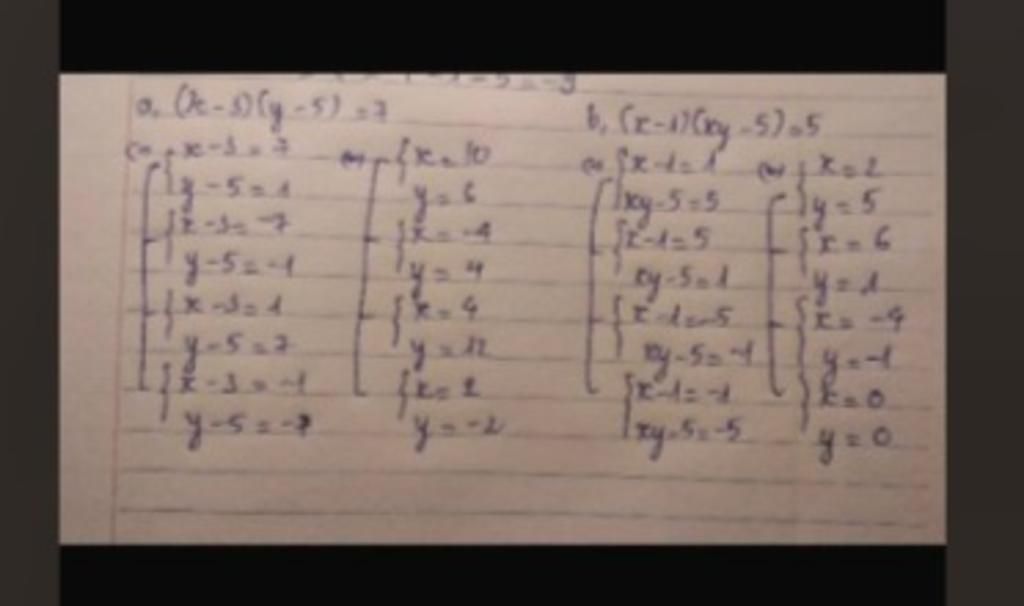 a, (x-3)(y-5)=7
(=) x-3=7
y-5=1
x-3=-7
y-5=-1
x-3=1
y-5=7
x-3=-1
y-5=-7
(=) x=10
y=6
x=-4
y=4
x=4
y=12
x=2
y=-2
b, (x-1)(xy-5)=5
(=) x-1=1
xy-5=5
x-1=5
xy-5=1
x-1=-5
xy-5=-1
x-1=-1
xy-5=-5
(=) x=2
y=5
x=6
y=1
x=-4
y=-1
x=0
y=0